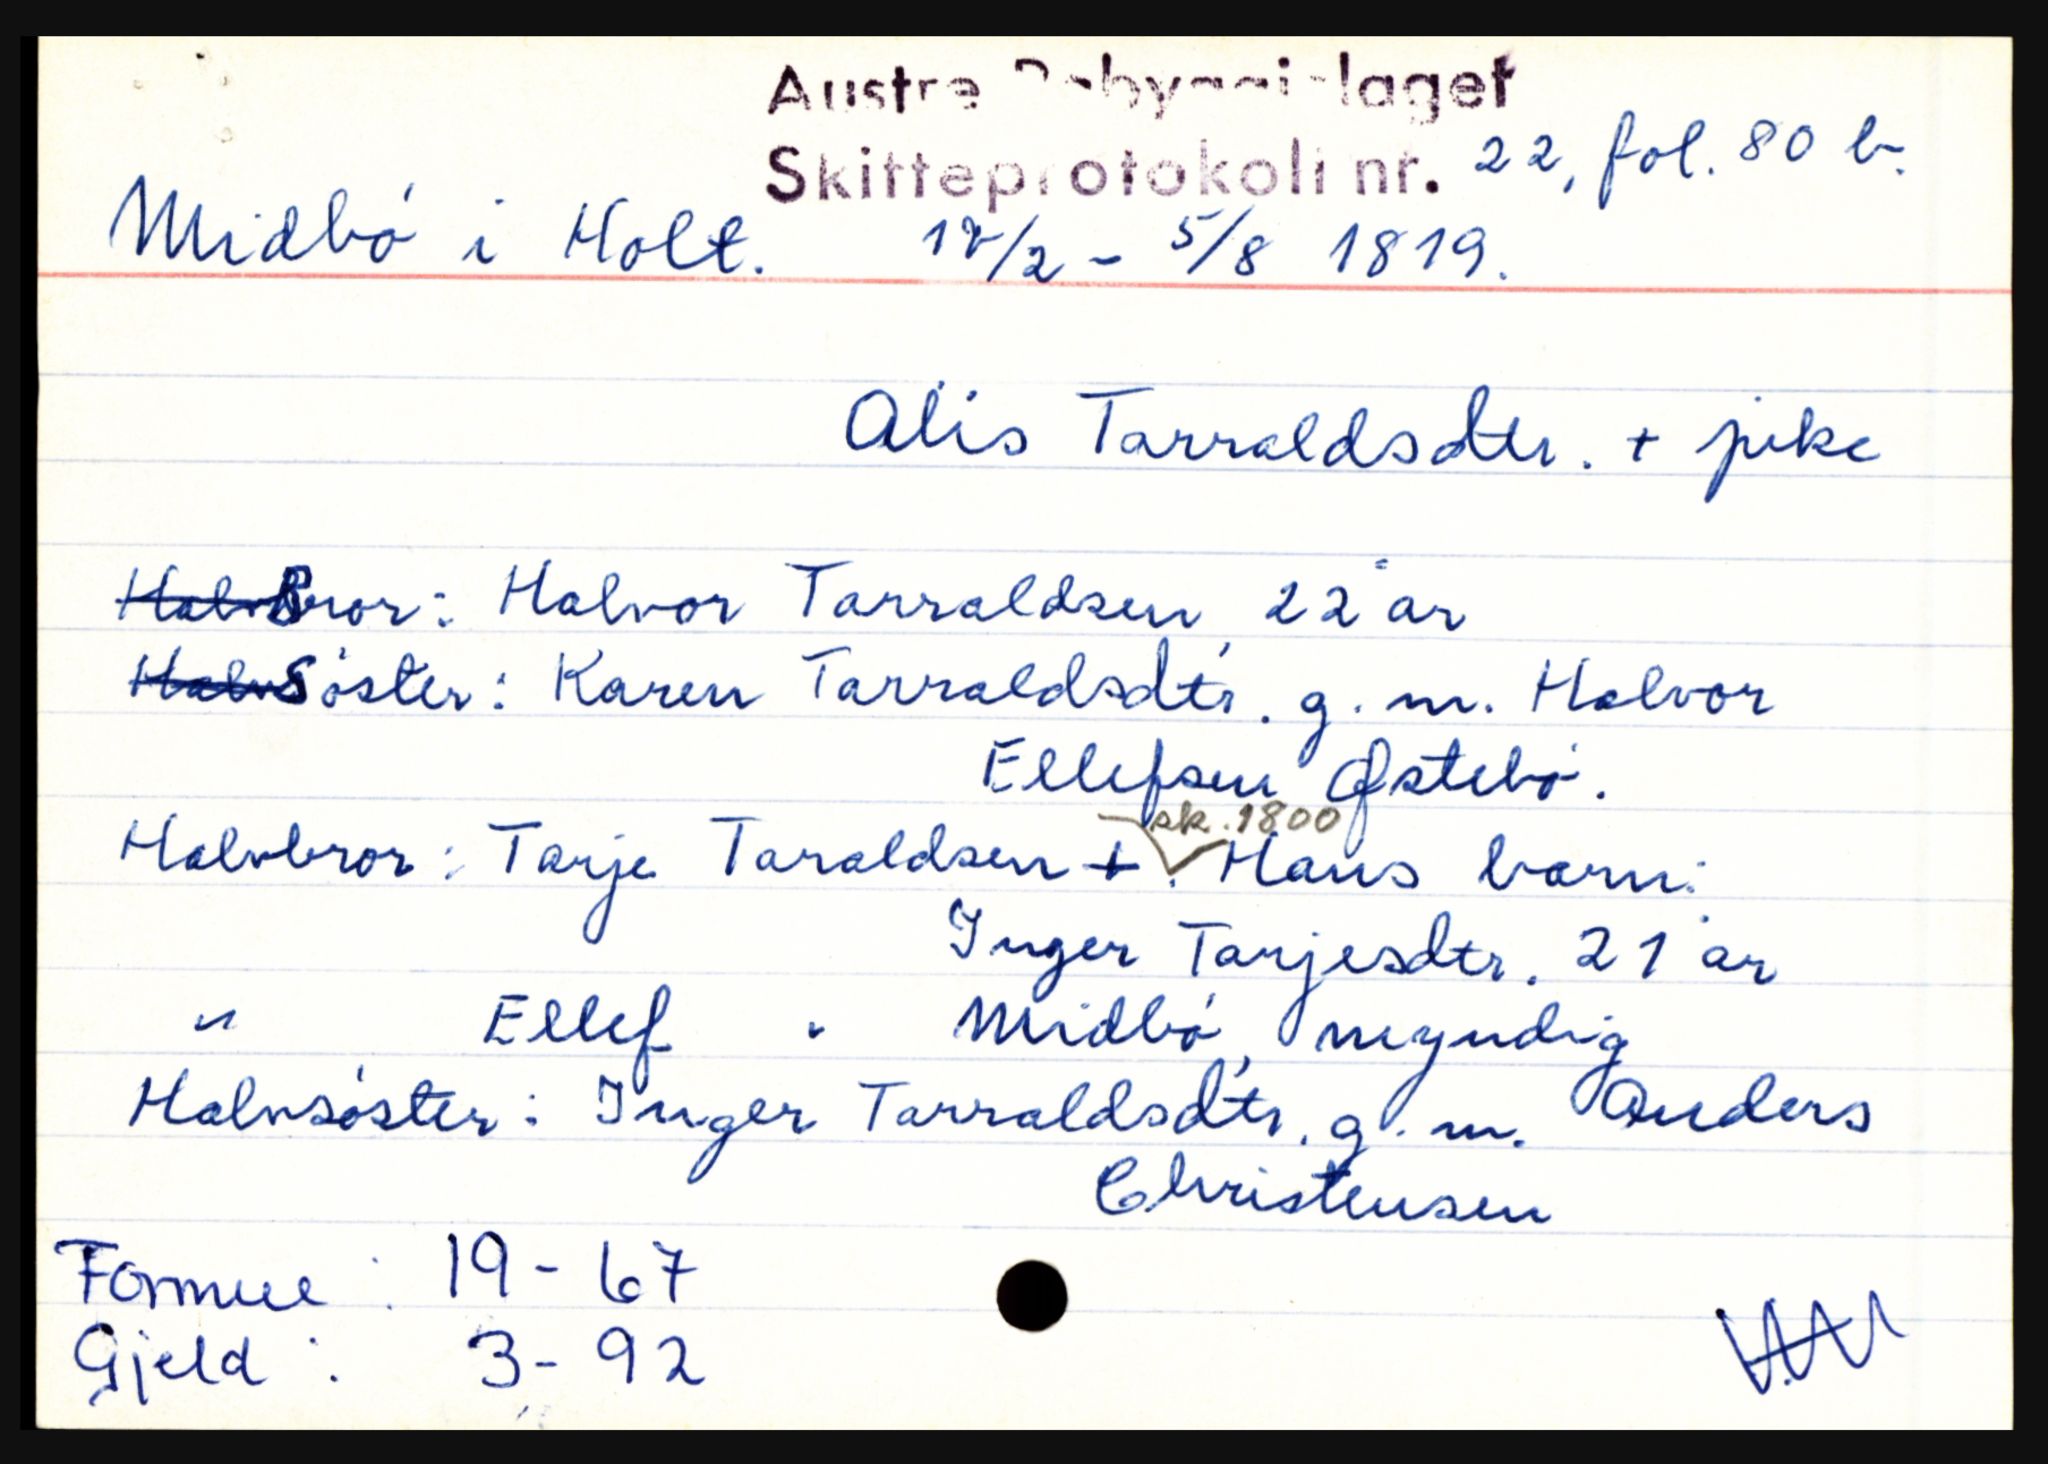 Austre Nebyggjelaget
Skifteprotokoll nr. 22, fol. 80 b.
Midbó i Holt. 18/2 - 5/8 1819.
Alis Tarraldsdtr. + pike
Halvbror: Halvor Tarraldsen 22 år
Halvsöster: Karen Tarraldsdtr. g. m. Halvor
Ellefsen Østebó.
sk. 1800
Halvbror: Tarje Taraldsen +. Hans barn:
Inger Tarjesdtr. 21 år
" Ellef " Midbó, myndig
Halvsöster: Inger Tarraldsdtr. g. m. Anders
Christensen
Formue: 19 - 67
Gjeld: 3 - 92